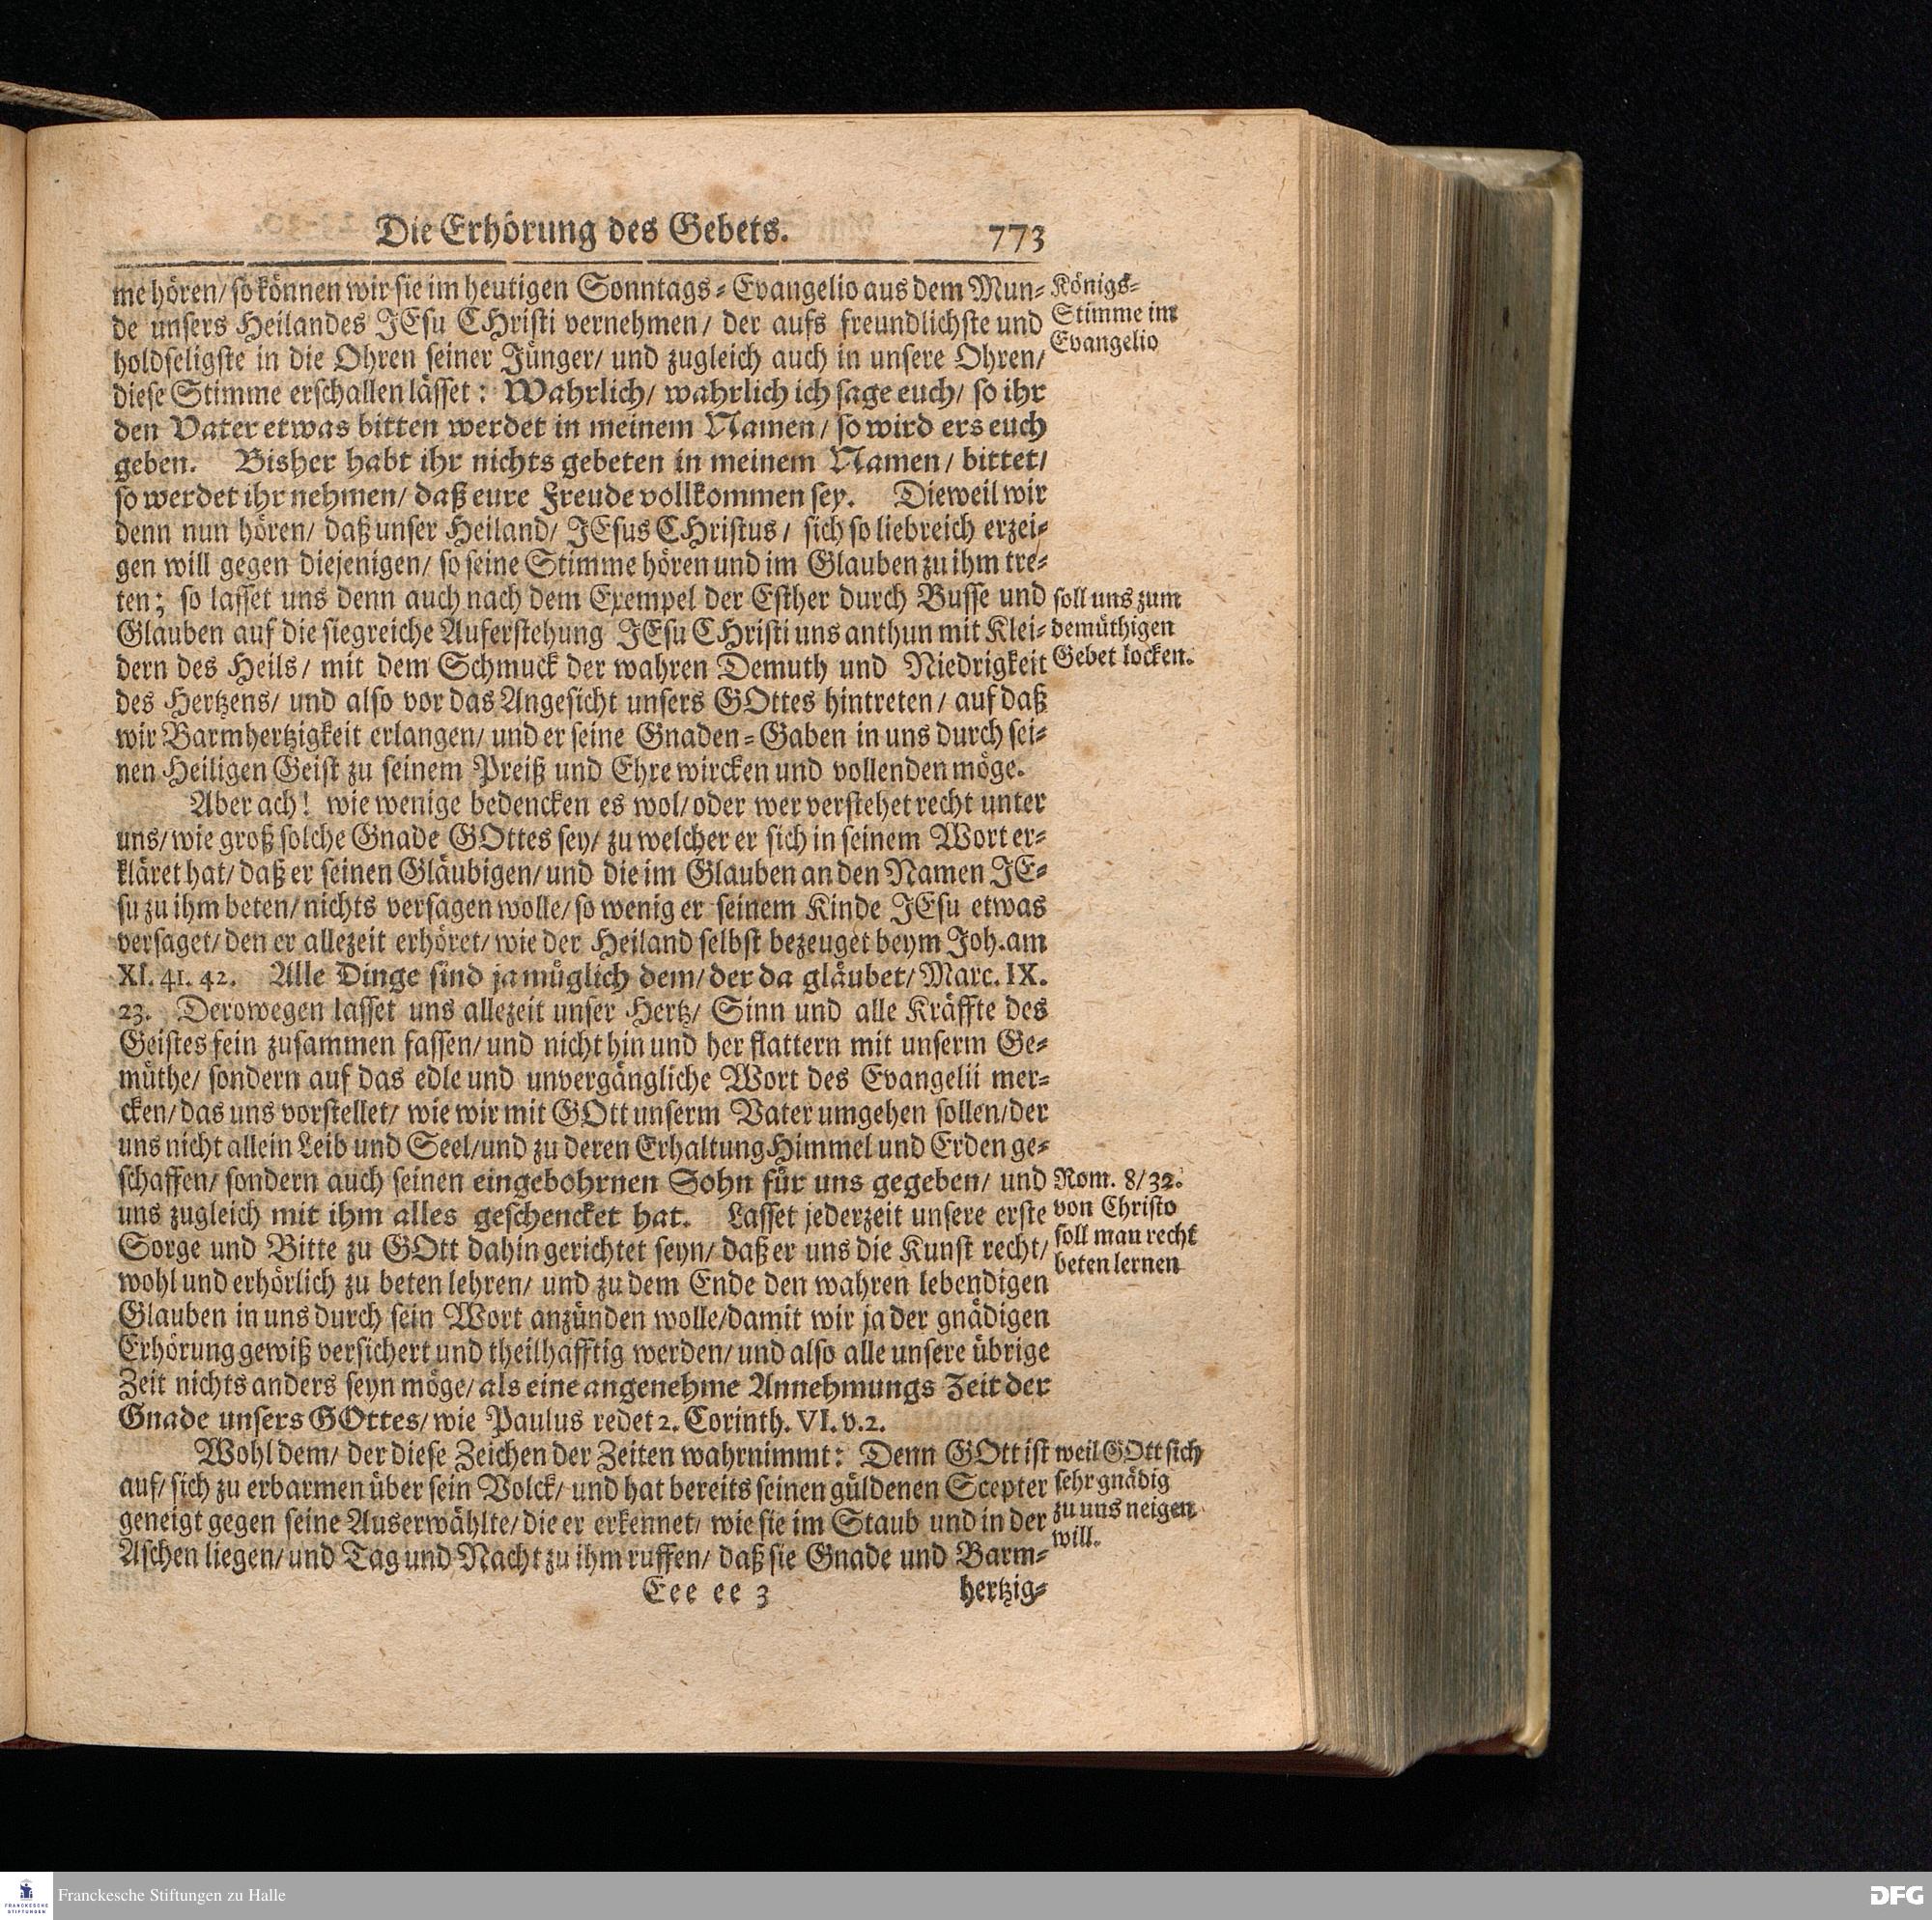 Die Erhörung des Gebets. 773
me hören/ so können wir sie im heutigen Sonntags-Evangelio aus dem Mun-
de unsers Heilandes JEsu CHristi vernehmen/ der aufs freundlichste und
holdseligste in die Ohren seiner Jünger/ und zugleich auch in unsere Ohren/
diese Stimme erschallen lässet: Wahrlich/ wahrlich ich sage euch/ so ihr
den Vater etwas bitten werdet in meinem Namen/ so wird ers euch
geben. Bisher habt ihr nichts gebeten in meinem Namen/ bittet/
so werdet ihr nehmen/ daß eure Freude vollkommen sey. Dieweil wir
denn nun hören/ daß unser Heiland/ JEsus CHristus/ sich so liebreich erzei-
gen will gegen diejenigen/ so seine Stimme hören und im Glauben zu ihm tre-
ten; so lasset uns denn auch nach dem Exempel der Esther durch Busse und
Glauben auf die siegreiche Auferstehung JEsu CHristi uns anthun mit Klei-
dern des Heils/ mit dem Schmuck der wahren Demuth und Niedrigkeit
des Hertzens/ und also vor das Angesicht unsers GOttes hintreten/ auf daß
wir Barmhertzigkeit erlangen/ und er seine Gnaden-Gaben in uns durch sei-
nen Heiligen Geist zu seinem Preiß und Ehre wircken und vollenden möge.
Aber ach! wie wenige bedencken es wol/ oder wer verstehet recht unter
uns/ wie groß solche Gnade GOttes sey/ zu welcher er sich in seinem Wort er-
kläret hat/ daß er seinen Gläubigen/ und die im Glauben an den Namen JE-
su zu ihm beten/ nichts versagen wolle/ so wenig er seinem Kinde JEsu etwas
versaget/ den er allezeit erhöret/ wie der Heiland selbst bezeuget beym Joh. am
XI. 41. 42. Alle Dinge sind ja müglich dem/ der da gläubet/ Marc. IX.
23. Derowegen lasset uns allezeit unser Hertz/ Sinn und alle Kräffte des
Geistes fein zusammen fassen/ und nicht hin und her flattern mit unserm Ge-
müthe/ sondern auf das edle und unvergängliche Wort des Evangelii mer-
cken/ das uns vorstellet/ wie wir mit GOtt unserm Vater umgehen sollen/ der
uns nicht allein Leib und Seel/ und zu deren Erhaltung Himmel und Erden ge-
schaffen/ sondern auch seinen eingebohrnen Sohn für uns gegeben/ und
uns zugleich mit ihm alles geschencket hat. Lasset jederzeit unsere erste
Sorge und Bitte zu GOtt dahin gerichtet seyn/ daß er uns die Kunst recht/
wohl und erhörlich zu beten lehren/ und zu dem Ende den wahren lebendigen
Glauben in uns durch sein Wort anzünden wolle/ damit wir ja der gnädigen
Erhörung gewiß versichert und theilhafftig werden/ und also alle unsere übrige
Zeit nichts anders seyn möge/ als eine angenehme Annehmungs Zeit der
Gnade unsers GOttes/ wie Paulus redet 2. Corinth. VI. v. 2.
Wohl dem/ der diese Zeichen der Zeiten wahrnimmt: Denn GOtt ist
auf/ sich zu erbarmen über sein Volck/ und hat bereits seinen güldenen Scepter
geneigt gegen seine Auserwählte/ die er erkennet/ wie sie im Staub und in der
Aschen liegen/ und Tag und Nacht zu ihm ruffen/ daß sie Gnade und Barm-
Eee ee 3 hertzig-
Königs-
Stimme im
Evangelio
soll uns zum
demüthigen
Gebet locken.
Rom. 8/32.
von Christo
soll man recht
beten lernen
weil GOtt sich
sehr gnädig
zu uns neigen
will.
FRANCKESCHE
STIFTUNGEN
Franckesche Stiftungen zu Halle
DFG